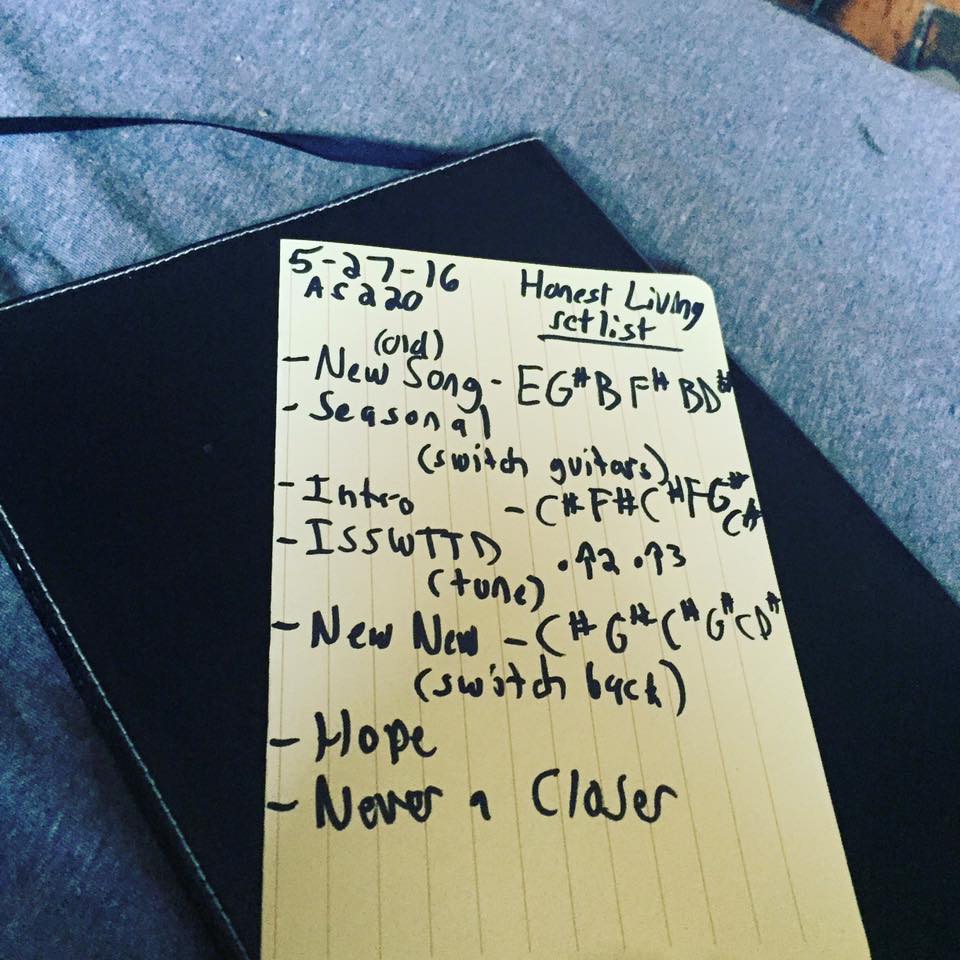 5-27-16
AS220
Honest Living
setlist
(old)
- New Song - EG#BF#BD#
- Seasonal
(switch guitars)
- Intro - C#F#C#FG#C#
- ISSWTTD .↑2 .↑3
(tune)
- New New - C#G#C#G#CD#
(switch back)
- Hope
- Never a Closer